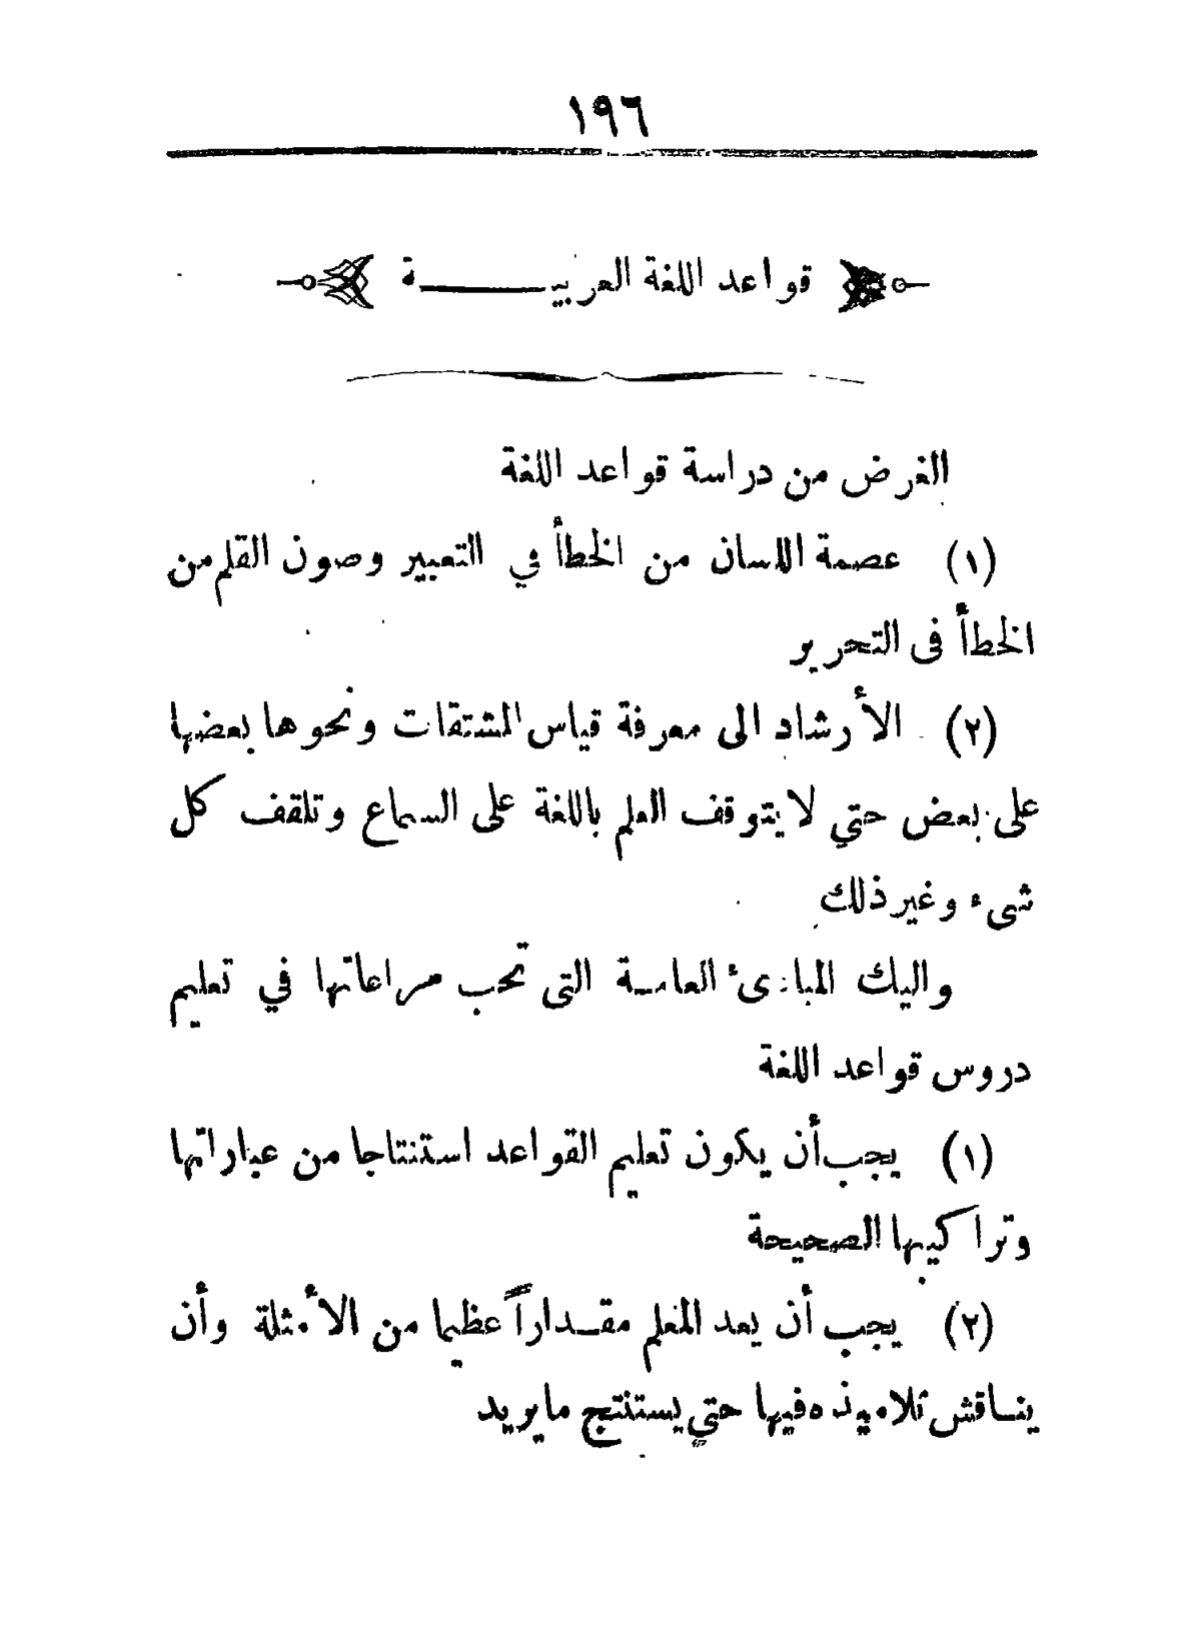 ١٩٦
قواعد اللغة العربيـــــــة
الغرض من دراسة قواعد اللغة
(١) عصمة اللسان من الخطأ في التعبير وصون القلم من
الخطأ فى التحرير
(٢) الأرشاد الى معرفة قياس المشتقات ونحوها بعضها
على بعض حتي لا يتوقف العلم باللغة على السماع وتلقف كل
شىء وغير ذلك
واليك المبادئ العامـة التى تجب مراعاتها في تعليم
دروس قواعد اللغة
(١) يجب أن يكون تعليم القواعد استنتاجا من عباراتها
وتراكيبها الصحيحة
(٢) يجب أن يعد المعلم مقـداراً عظيما من الأمثلة وأن
ينـاقش تلاميذه فيها حتي يستنتج ما يريد